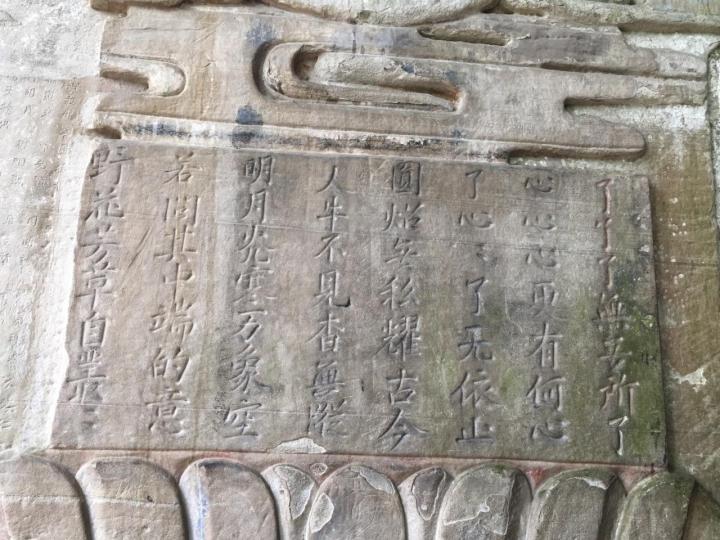 了了了無无所了
心心心更有何心
了心〻了无依止
圓炤无私耀古今
人牛不見杳無蹤
明月光寒万象空
若問其中端的意
野花芳草自叢〻